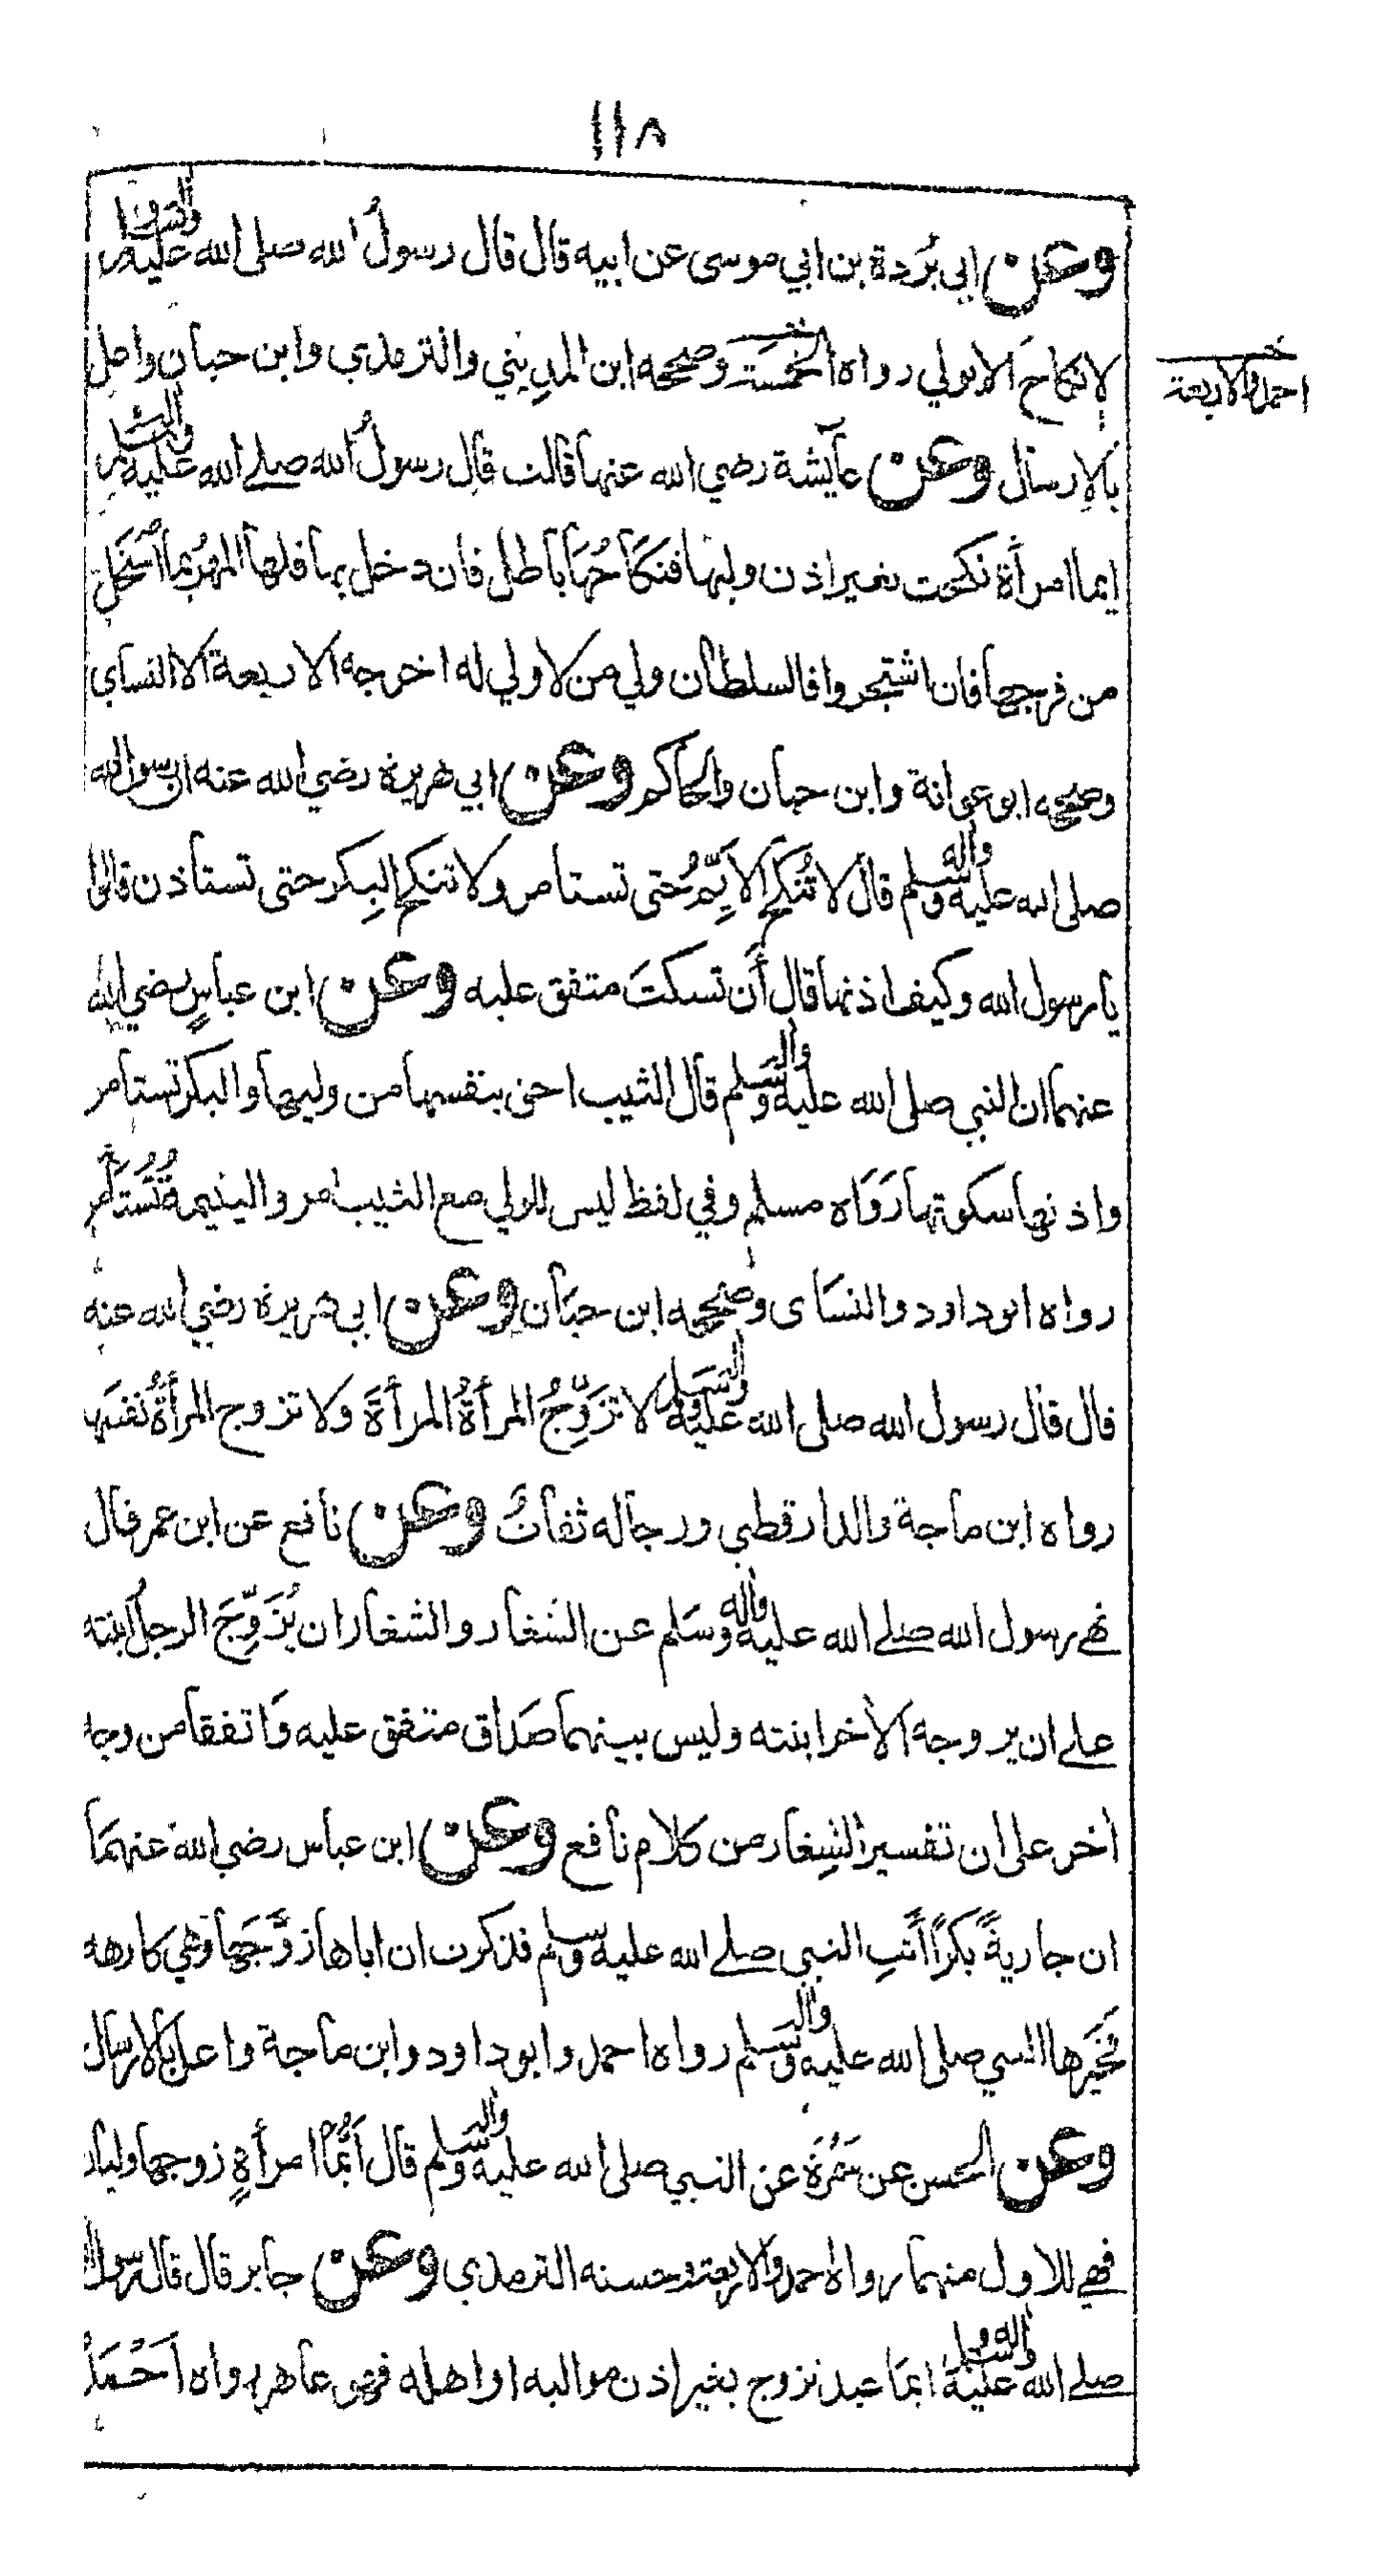 ١١٨
وعن ابي بُردة بن ابي موسى عن ابيه قال قال رسولُ الله صلى الله عليه وآله وسلم
لا نكاحَ الا بولي رواه الخمسة وصححه ابن المديني والترمذي وابن حبان واعل
خـ
احمد والاربعة
بالارسال وعن عآيشة رضي الله عنها قالت قال رسولُ الله صلے الله عليه وآله وسلم
ايما امرأة نكحت بغير اذن وليها فنكاحُهَا باطل فان دخل بها فلها المهرُ بما استحل
من فرجها فان اشتجروا فالسلطان ولي من لا ولي له اخرجه الاربعة الا النساي
وصححه ابو عوانة وابن حبان والحاكم وعن ابي هريرة رضي الله عنه ان رسول الله
صلى الله عليه وآله وسلم قال لا تُنكح الايّمُ حتى تستامر ولا تنكح البِكر حتى تستاذن قالوا
يا رسول الله وكيف اذنها قال أَن تسكتَ متفق عليه وعن ابن عباسٍ رضي الله
عنهما ان النبي صلى الله عليه وآله وسلم قال الثيب احق بنفسها من وليها والبكر تستامر
واذنها سكوتها رَوَاه مسلم وفي لفظ ليس للولي مع الثيب امر واليتيمة تُستَأمر
رواه ابو داود والنسَاى وصححه ابن حبَان وعن ابي هريرة رضي الله عنه
قال قال رسول الله صلى الله عليه وآله وسلم لا تزَوِّجُ المرأةُ المرأةَ ولا تزوج المرأةُ نفسَها
رواه ابن ماجة والدارقطني ورجاله ثقاتٌ وعن نافع عن ابن عمر قال
نهے رسول الله صلے الله عليه وآله وسَلم عن الشغار والشغار ان يُزَوِّجَ الرجلُ ابنته
علے ان يزوجه الاخر ابنته وليس بينهما صَداق متفق عليه وَاتفقا من وجه
اخر على ان تفسير الشِغار من كلام نافع وعن ابن عباس رضي الله عنهمَا
ان جاريةً بكرًا أتتِ النبي صلے الله عليه وسلم فذكرت ان اباها زوَّجَها وهي كارهه
فخيّرها النبي صلى الله عليه وآله وسلم رواه احمد وابو داود وابن ماجة واعل بالارسال
وعن الحسن عن سَمُرَة عن النبي صلى الله عليه وآله وسلم قال أيُّما امرأةٍ زوجها وليان
فهي للاول منهما رواه احمد والاربعة وحسنه الترمذي وعن جابر قال قال رسول الله
صلے الله عليه وآله وسلم ايمَا عبد تزوج بغير اذن مواليه او اهله فهو عاهر رواه اَحْمَدُ